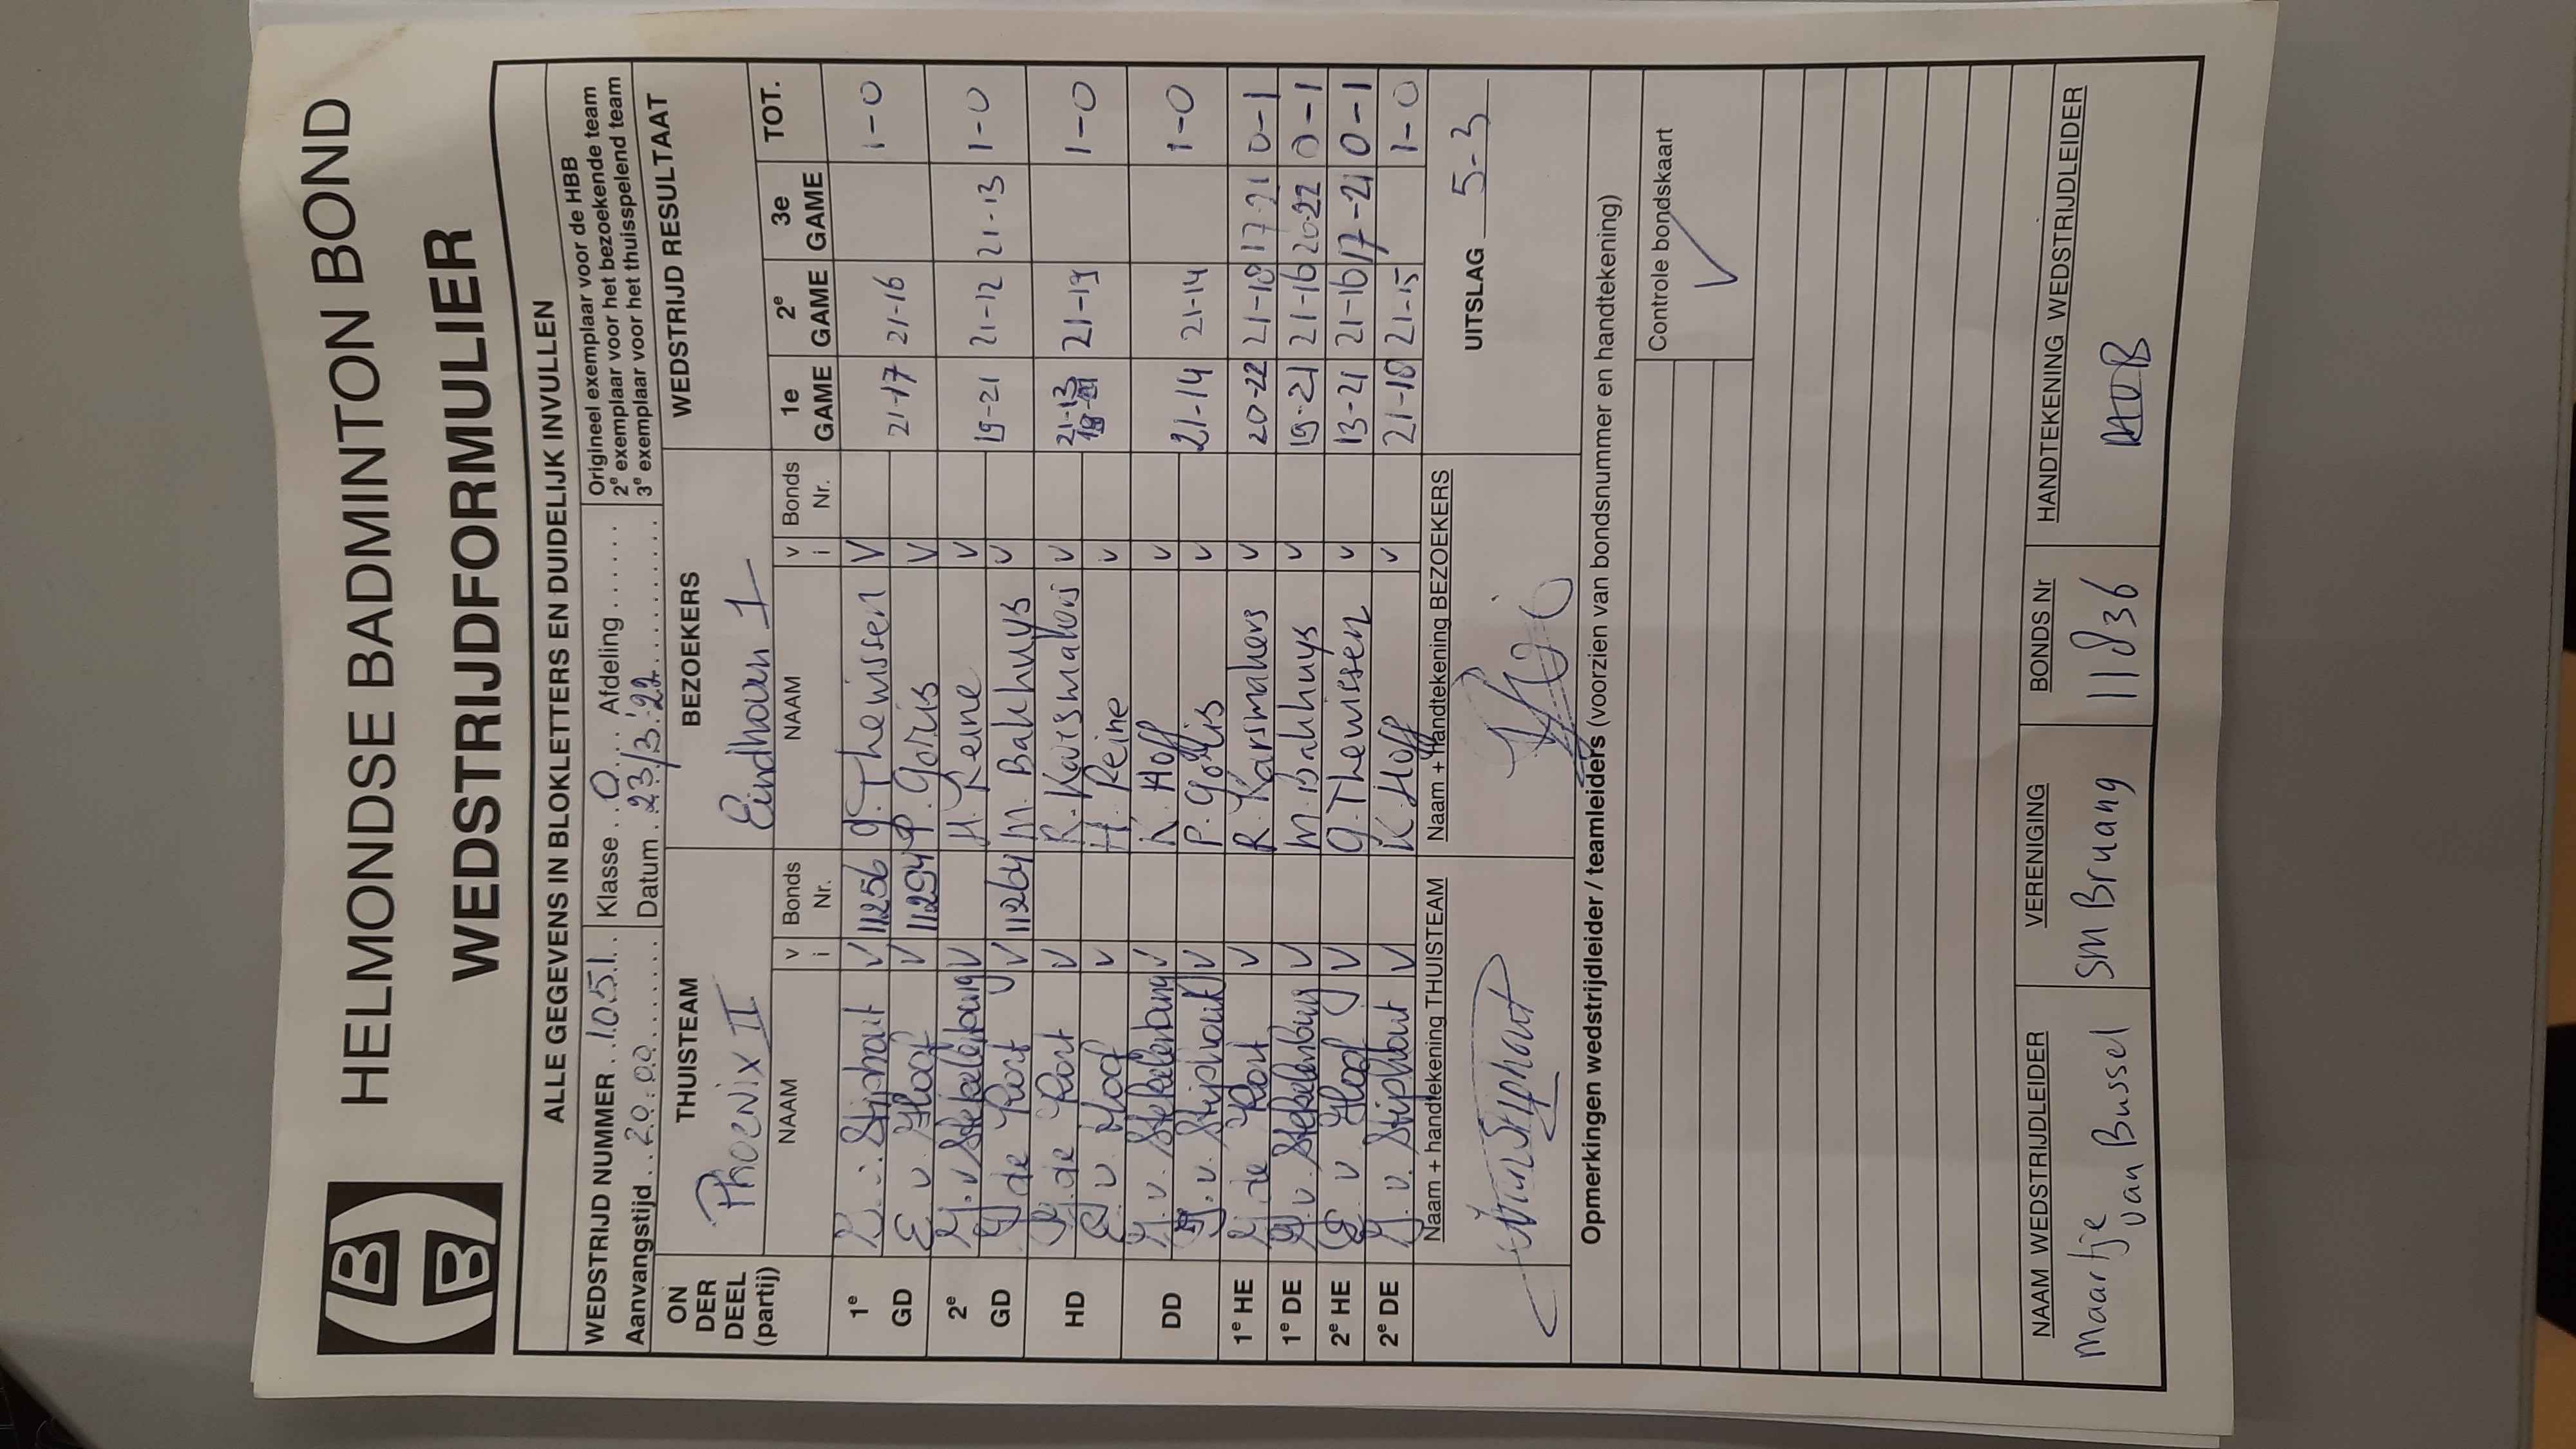 HELMONDSE BADMINTON BOND
WEDSTRIJDFORMULIER
ALLE GEGEVENS IN BLOKLETTERS EN DUIDELIJK INVULLEN
WEDSTRIJD NUMMER 1051 Klasse O Afdeling Origineel exemplaar voor de HBB
2e exemplaar voor het bezoekende team
Aanvangstijd 20.00 Datum 23/3/'22 3e exemplaar voor het thuisspelend team
ON DER DEEL (partij) THUISTEAM BEZOEKERS WEDSTRIJD RESULTAAT
Phoenix II Eindhoven 1
NAAM v i Bonds Nr. NAAM v i Bonds Nr. 1e GAME 2e GAME 3e GAME TOT.
1e Stiphout V 11256 G. Thewissen V 1-0
GD E v Hoof V 11294 P. Goris V 21-17 21-16
2e M. v Stekelenburg V H. Reine V
GD G de Kort V 11264 M. Bakhuys V 19-21 21-12 21-13 1-0
HD G. de Kort V R. Karsmakers V 21-13 21-19 1-0
E v Hoof V H. Reine V
DD M. v. Stekelenburg V K. Hoff V
v. Stiphout V P. Goris V 21-14 21-14 1-0
1e HE G de Kort V R. Karsmakers V 20-22 21-18 17-21 0-1
1e DE M. v. Stekelenburg V M. Bakhuys V 19-21 21-16 20-22 0-1
2e HE E v Hoof V G. Thewissen V 13-21 21-16 17-21 0-1
2e DE v. Stiphout V K. Hoff V 21-18 21-15 1-0
Naam + handtekening THUISTEAM Naam + Handtekening BEZOEKERS
UITSLAG 5-3
v Stiphout
Opmerkingen wedstrijdleider / teamleiders (voorzien van bondsnummer en handtekening)
Controle bondskaart
NAAM WEDSTRIJDLEIDER VERENIGING BONDS Nr HANDTEKENING WEDSTRIJDLEIDER
Maartje
van Bussel SM Bruang 11836